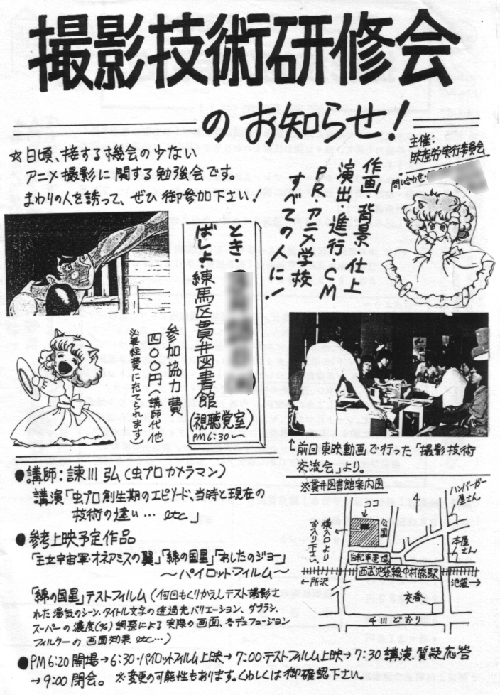 撮影技術研修会
のお知らせ!
☆日頃、接する機会の少ない
アニメ撮影に関する勉強会です。
まわりの人を誘って、ぜひ御参加下さい!
主催:
作画・背景・仕上
演出・進行・CM
PR・アニメ学校
すべての人に!
とき・
ばしょ・練馬区貫井図書館
(視聴覚室)
PM6:30〜
参加協力費
四〇〇円(講師代他
必要経費に充てられます)
前回東映動画で行った「撮影技術
交流会」より。
●講師:諫川弘(虫プロカメラマン)
講演「虫プロ創生期のエピソード、当時と現在の
技術の違い…etc」
●参考上映予定作品
「王立宇宙軍・オネアミスの翼」「綿の国星」「あしたのジョー」
〜パイロットフィルム〜
「綿の国星」テストフィルム(何回もくりかえしテスト撮影さ
れた湯気のシーン、タイトル文字の透過光バリエーション、ダブラシ、
スーパーの濃度(%)調整による実際の画面、各ディフュージョン
フィルターの画面効果etc…)
●PM6:20開場→6:30・パイロットフィルム上映→7:00・テストフィルム上映→7:30講演、質疑応答
→9:00閉会。※変更の可能性もあります。くわしくは御確認下さい。
※貫井図書館案内図
ココ
公園
横の入口より
お入り下さい。
自転車置場
ハンバーガー
屋さん
本屋さん
西武池袋線中村橋駅
←所沢
池袋→
交番
千川どおり